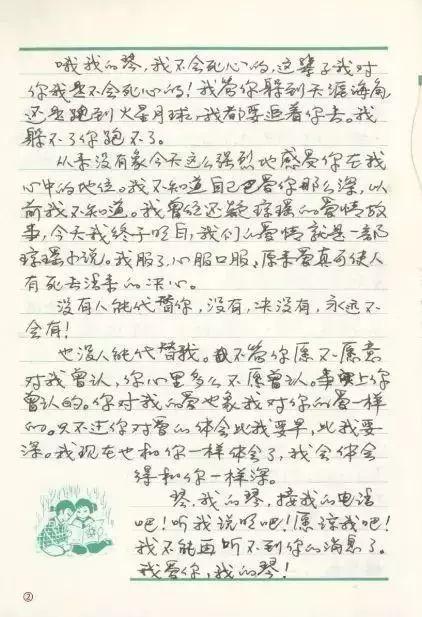 哦我的琴，我不会死心的，这辈子我对
你我是不会死心的！我管你躲到天涯海角
还是跑到火星月球，我都要追着你去。我
躲不了你跑不了。
从来没有象今天这么强烈地感受你在我
心中的地位。我不知道自己已爱你那么深，以
前我不知道。我曾经还疑琼瑶的爱情故
事，今天我终于明白，我们的爱情就是一部
琼瑶小说。我服了，心服口服，原来爱真可使人
有死去活来的决心。
没有人能代替你，没有，决没有，永远不
会有！
也没人能代替我。不管你愿不愿意
对我曾认，你心里多么不愿曾认。事实上你
曾认的。你对我的爱也象我对你的爱一样
的。只不过你对爱的体会比我要早，比我要
深。我现在也和你一样体会了，我会体会
得和你一样深。
琴，我的琴，接我的电话
吧！听我说明吧！原谅我吧！
我不能再听不到你的消息了。
我爱你，我的琴！
②